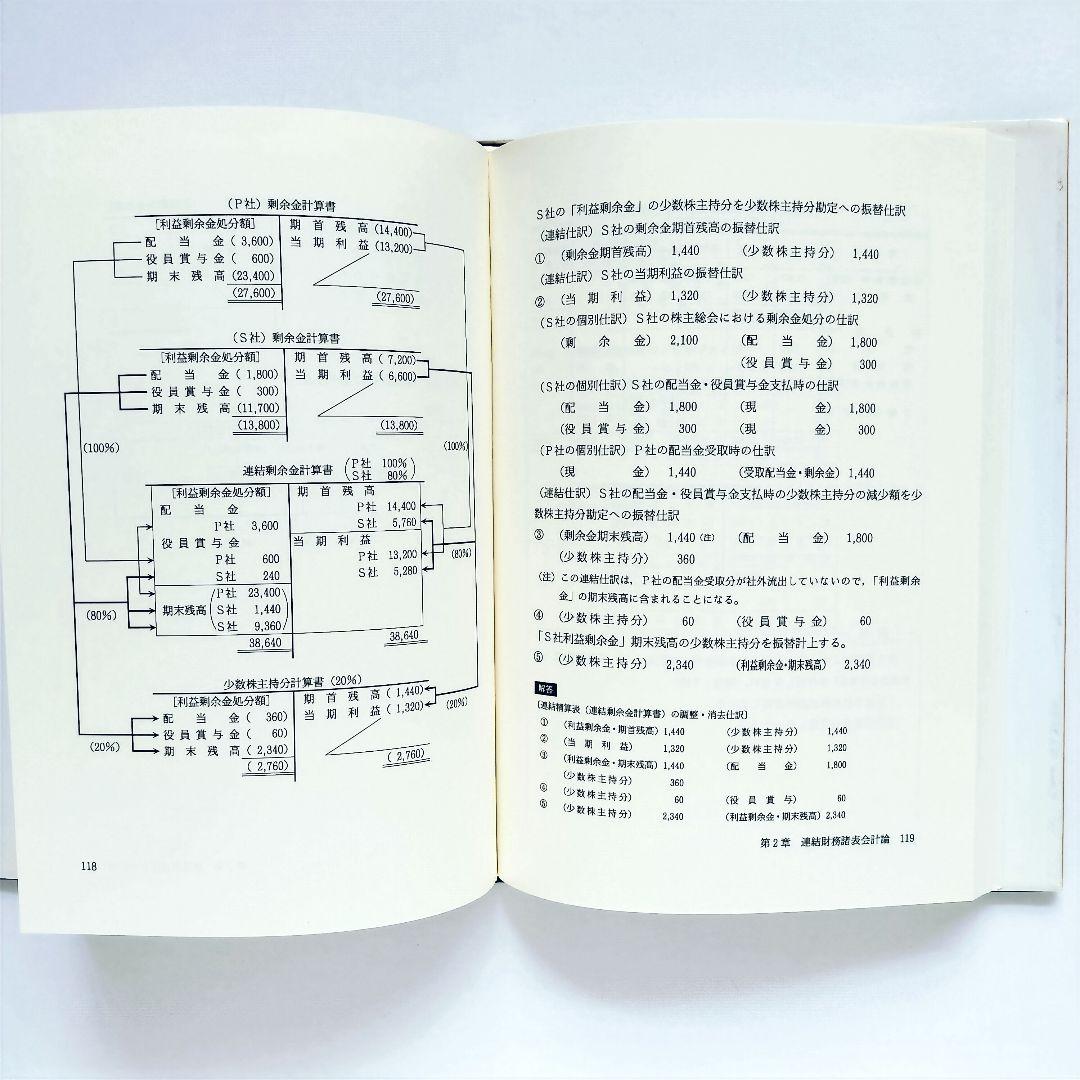 (P社) 剰余金計算書
[利益剰余金処分額] 期首残高 (14,400)
配当金 ( 3,600) 当期利益 (13,200)
役員賞与金 ( 600)
期末残高 (23,400)
(27,600) (27,600)
(S社) 剰余金計算書
[利益剰余金処分額] 期首残高 ( 7,200)
配当金 ( 1,800) 当期利益 ( 6,600)
役員賞与金 ( 300)
期末残高 (11,700)
(13,800) (13,800)
(100%) (100%)
連結剰余金計算書 (P社 100% S社 80%)
[利益剰余金処分額] 期首残高
配当金 P社 14,400
P社 3,600 S社 5,760
役員賞与金 当期利益
P社 600 P社 13,200 (80%)
S社 240 S社 5,280
P社 23,400
(80%) 期末残高 S社 1,440
S社 9,360
38,640 38,640
少数株主持分計算書 (20%)
[利益剰余金処分額] 期首残高 ( 1,440)
配当金 ( 360) 当期利益 ( 1,320) (20%)
役員賞与金 ( 60)
(20%) 期末残高 ( 2,340)
( 2,760) ( 2,760)
118
S社の「利益剰余金」の少数株主持分を少数株主持分勘定への振替仕訳
(連結仕訳) S社の剰余金期首残高の振替仕訳
① (剰余金期首残高) 1,440 (少数株主持分) 1,440
(連結仕訳) S社の当期利益の振替仕訳
② (当期利益) 1,320 (少数株主持分) 1,320
(S社の個別仕訳) S社の株主総会における剰余金処分の仕訳
(剰余金) 2,100 (配当金) 1,800
(役員賞与金) 300
(S社の個別仕訳) S社の配当金・役員賞与金支払時の仕訳
(配当金) 1,800 (現金) 1,800
(役員賞与金) 300 (現金) 300
(P社の個別仕訳) P社の配当金受取時の仕訳
(現金) 1,440 (受取配当金・剰余金) 1,440
(連結仕訳) S社の配当金・役員賞与金支払時の少数株主持分の減少額を少
数株主持分勘定への振替仕訳
③ (剰余金期末残高) 1,440 (注) (配当金) 1,800
(少数株主持分) 360
(注) この連結仕訳は、P社の配当金受取分が社外流出していないので、「利益剰余
金」の期末残高に含まれることになる。
④ (少数株主持分) 60 (役員賞与金) 60
「S社利益剰余金」期末残高の少数株主持分を振替計上する。
⑤ (少数株主持分) 2,340 (利益剰余金・期末残高) 2,340
解答
[連結精算表(連結剰余金計算書)の調整・消去仕訳]
① (利益剰余金・期首残高) 1,440 (少数株主持分) 1,440
② (当期利益) 1,320 (少数株主持分) 1,320
③ (利益剰余金・期末残高) 1,440 (配当金) 1,800
(少数株主持分) 360
④ (少数株主持分) 60 (役員賞与) 60
⑤ (少数株主持分) 2,340 (利益剰余金・期末残高) 2,340
第2章 連結財務諸表会計論 119